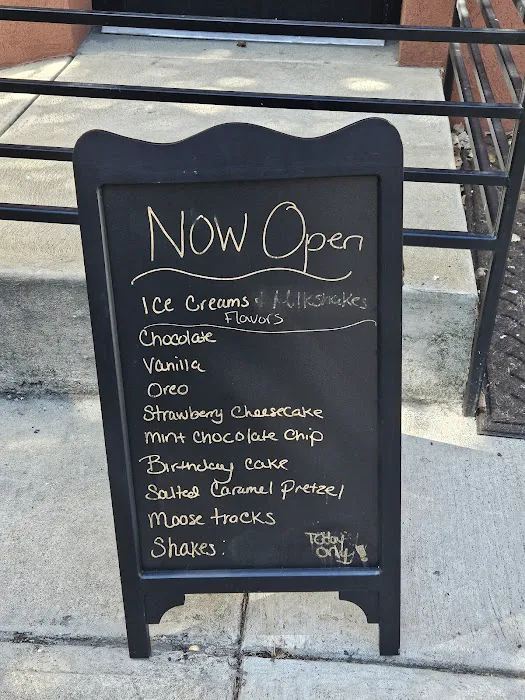 NOW Open
Ice Creams + Milkshakes
Flavors
Chocolate
Vanilla
Oreo
Strawberry Cheesecake
Mint chocolate chip
Birthday cake
Salted Caramel Pretzel
Moose tracks
Shakes:
Today
only!